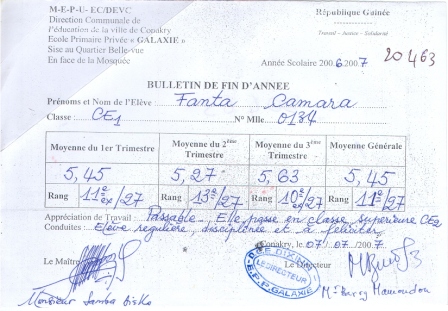 M-E-P-U- EC/DEVC
Direction Communale de
l'éducation de la ville de Conakry
Ecole Primaire Privée « GALAXIE »
Sise au Quartier Belle-vue
En face de la Mosquée
République Guinée
Travail - Justice - Solidarité
Année Scolaire 2006 2007
20463
BULLETIN DE FIN D'ANNEE
Prénoms et Nom de l'Elève : Fanta Camara
Classe : CE1 N° Mlle 0134
Moyenne du 1er Trimestre Moyenne du 2ème Trimestre Moyenne du 3ème Trimestre Moyenne Générale
5,45 5,27 5,63 5,45
Rang 11e ex/27 Rang 13e/27 Rang 10e ex/27 Rang 11e/27
Appréciation de Travail : Passable, Elle passe en classe supérieure CE2
Conduites : Elève régulière, disciplinée et à féliciter
Conakry, le 07/07/2007
Le Maître Le Directeur
LE DIRECTEUR
E.P.P. GALAXIE
Monsieur Samba
Mr Barry Mamoudou